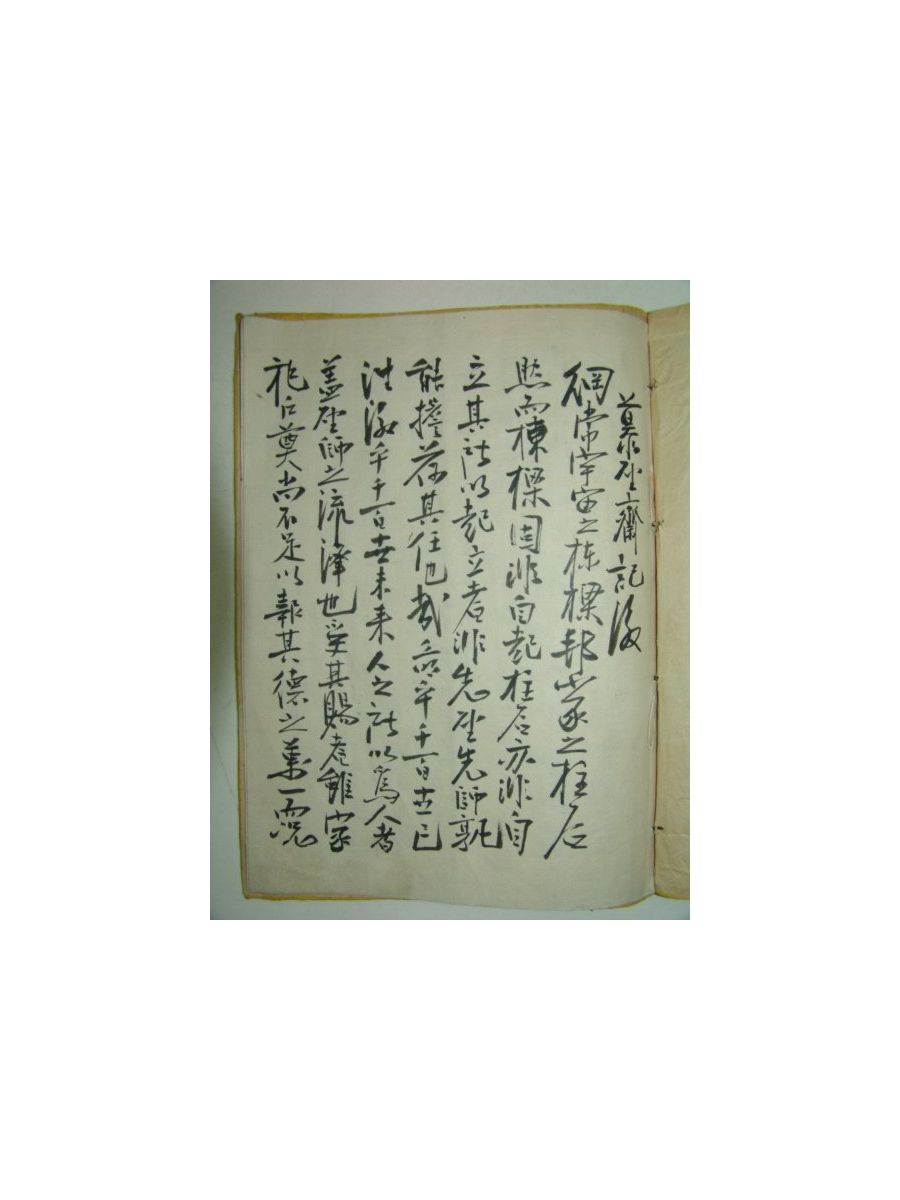 慕聖齋記後
綱常宇宙之棟樑邦家之柱石
然而棟樑固非自起柱石亦非自
立其所以起立者非先聖先師孰
能擔荷其任也哉前乎千百世已
往後乎千百世未來人之所以爲人者
蓋聖師之流澤也受其賜者雖家
祀戶奠尚不足以報其德之萬一況